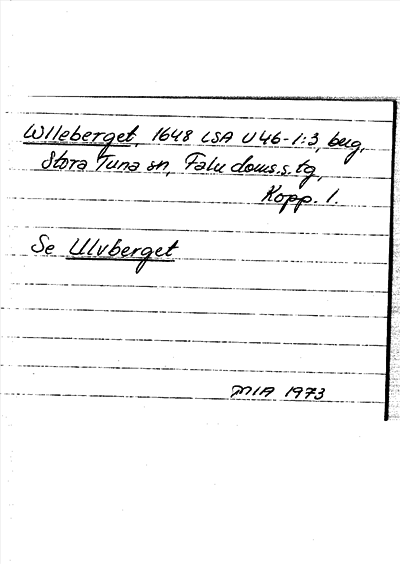 Wlleberget, 1648 LSA U46-1:3, beg,
Stora Tuna sn, Falu doms.s.tg,
Kopp. l.
Se Ulvberget
MIA 1973